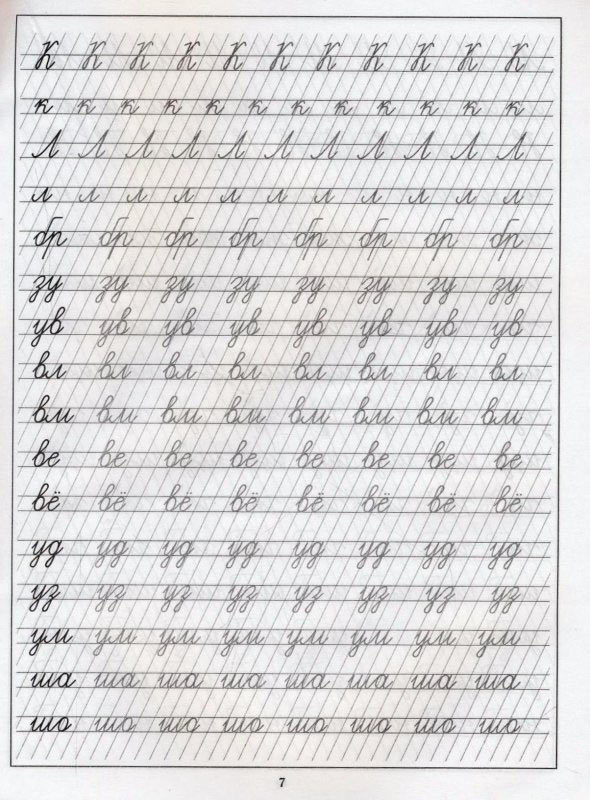 К К К К К К К К К К К
к к к к к к к к к к к к
Л Л Л Л Л Л Л Л Л Л Л
л л л л л л л л л л л
бр бр бр бр бр бр бр бр
зу зу зу зу зу зу зу зу
ув ув ув ув ув ув ув ув
вл вл вл вл вл вл вл вл
вм вм вм вм вм вм вм вм
ве ве ве ве ве ве ве ве
вё вё вё вё вё вё вё вё
уд уд уд уд уд уд уд уд
уз уз уз уз уз уз уз уз
ум ум ум ум ум ум ум ум
ша ша ша ша ша ша ша ша
шо шо шо шо шо шо шо шо
7